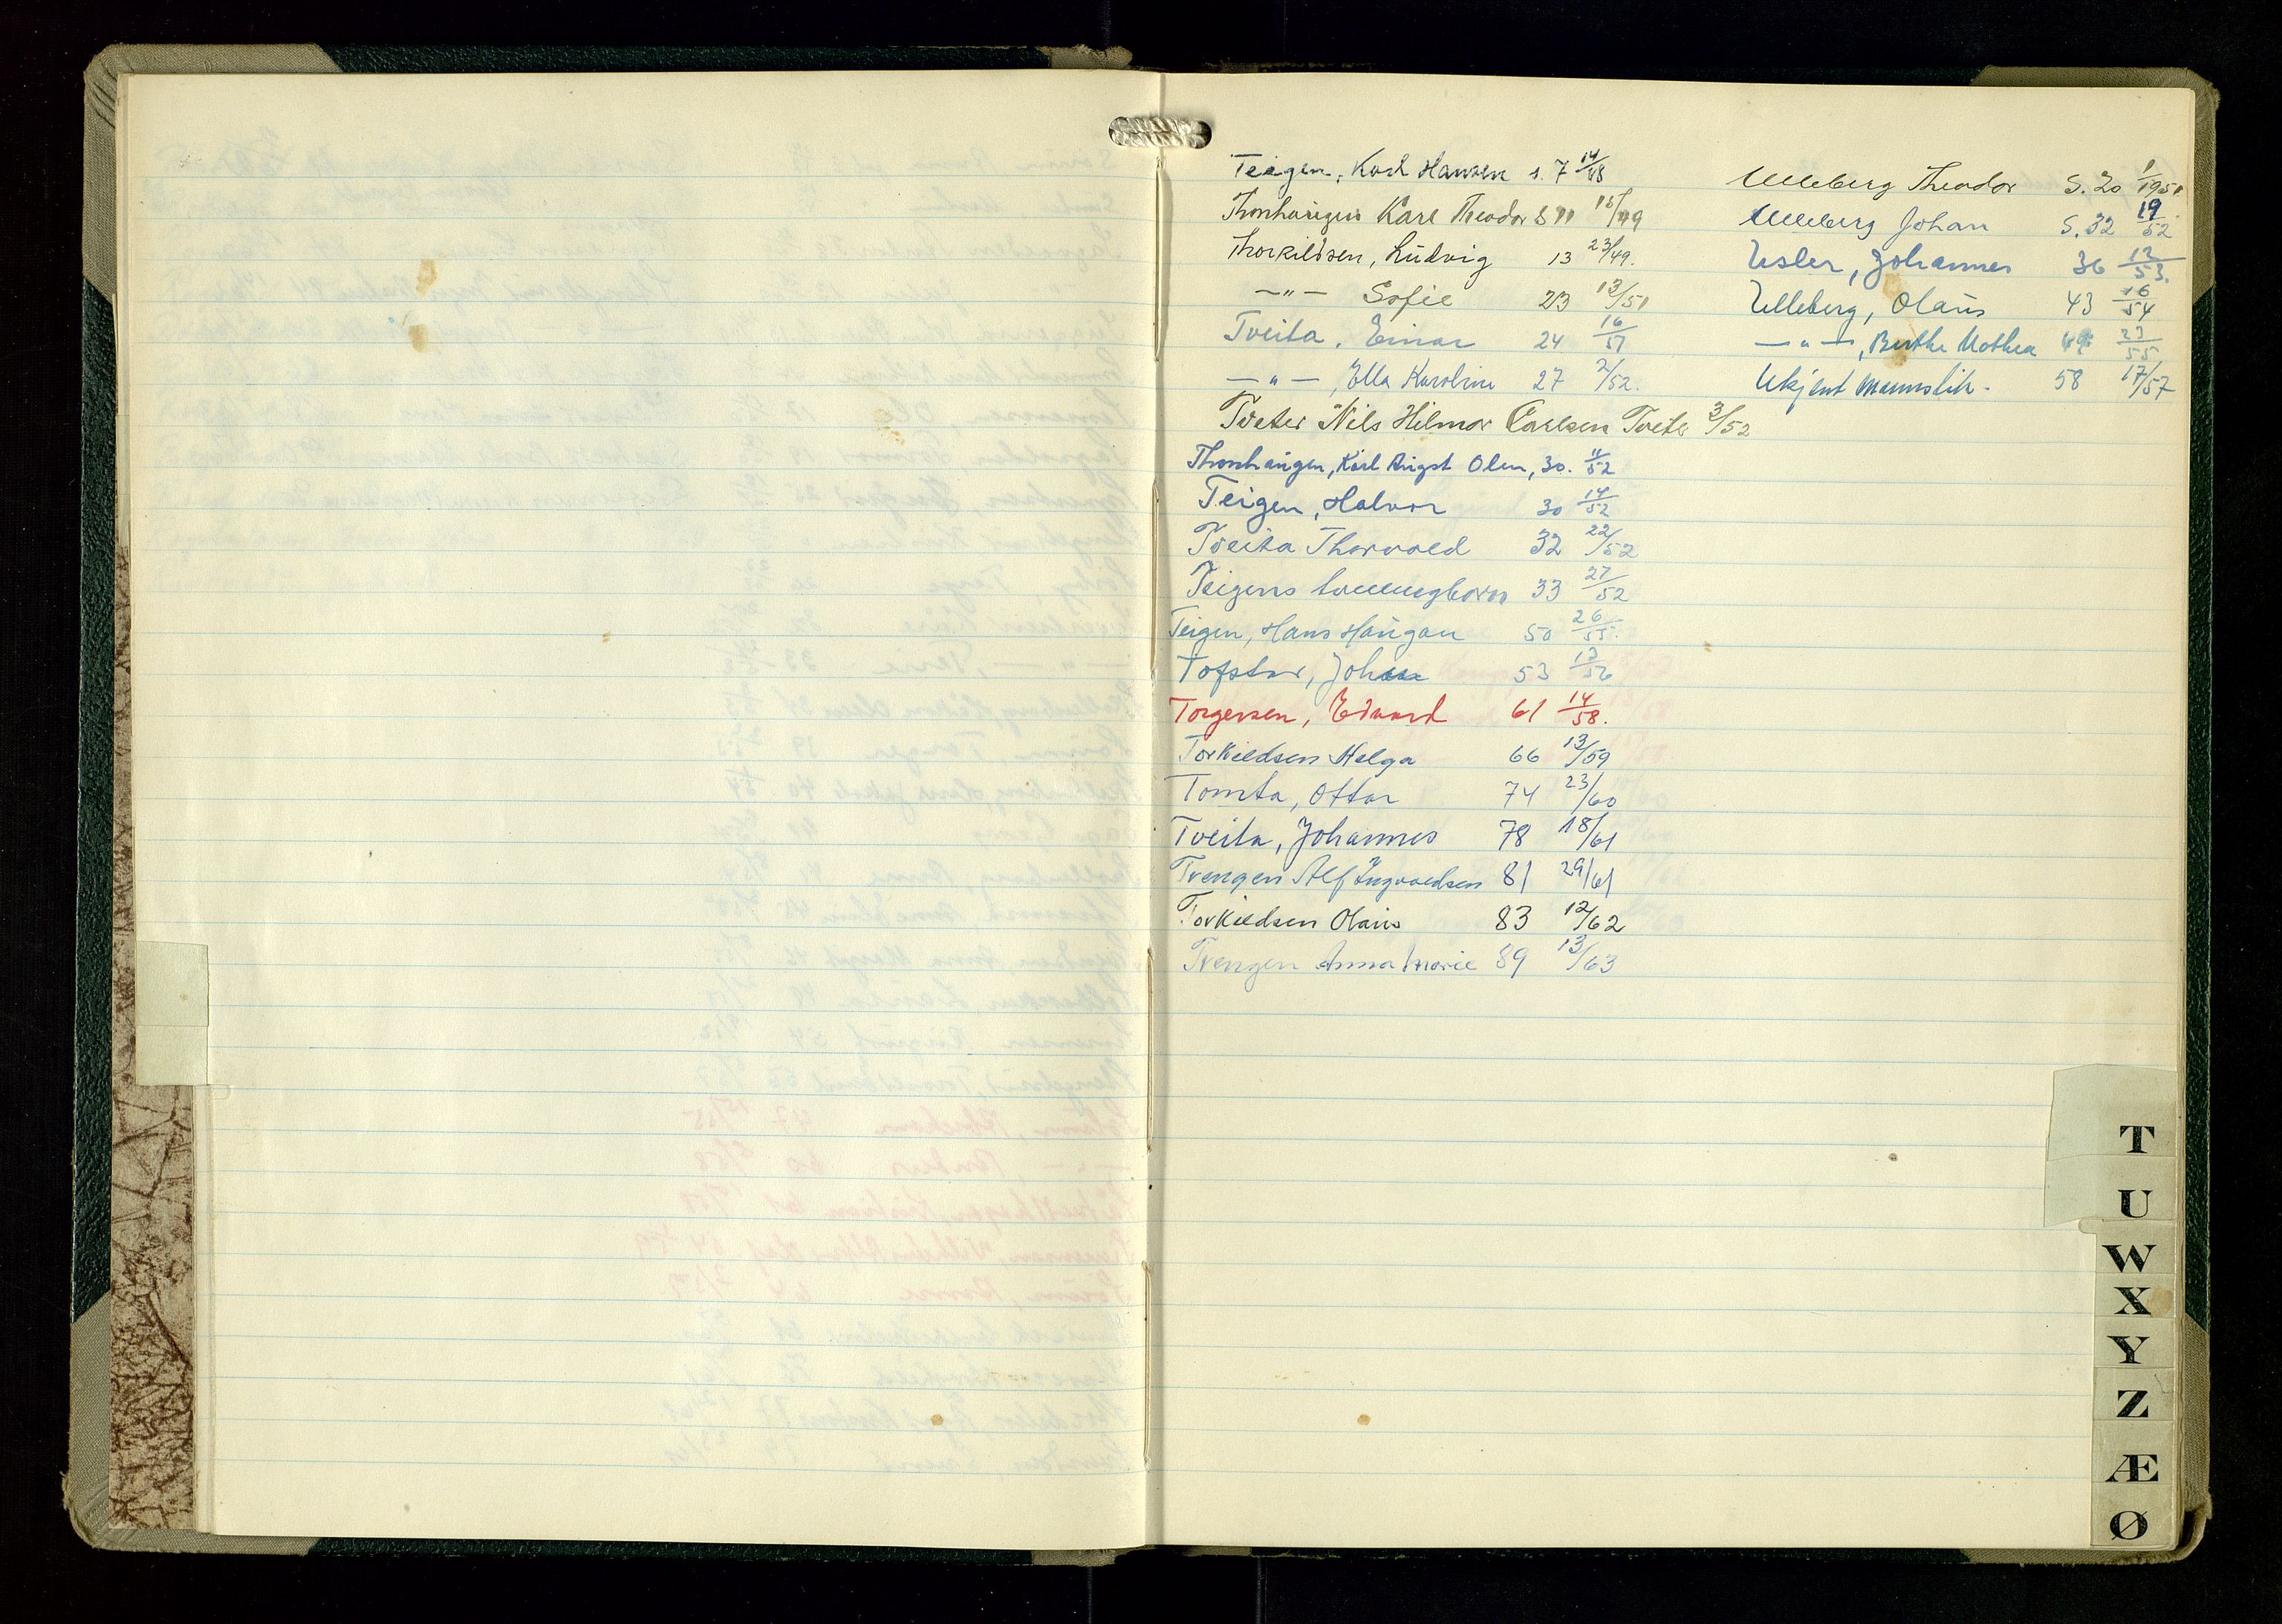 Teigen, Karl Hansen s. 7 14/48
Thonhaugen Karl Theodor S 11 15/49
Thorkildsen, Ludvig 13 23/49.
—"— Sofie 23 13/51
Tveita, Einar 24 16/51
—"—, Ella Karoline 27 2/52.
Tveter Nils Hilmar Carlsen Tveter 3/52
Thonhaugen, Karl August Olsen, 30. 11/52
Teigen, Halvor 30 14/52
Tveita Thorvald 32 22/52
Teigens tvillingborn 33 27/52
Teigen, Hans Haugan 50 26/55.
Tofster, Johan 53 13/56
Torgersen, Edvard 61 14/58.
Torkildsen Helga 66 13/59
Tomta, Ottar 74 23/60
Tveita, Johannes 78 18/61
Trengen Alf Ingvaldsen 81 29/61
Torkildsen Olaus 83 12/62
Trengen Anna Marie 89 13/63
Ulleberg Theodor S. 20 1/1951
Ulleberg Johan S. 32 19/52
Usler, Johannes 36 12/53.
Ulleberg, Olaus 43 16/54
—"—, Berthe Mathea 49 23/55
Ukjent mannslik. 58 17/57
T
U
W
X
Y
Z
Æ
Ø